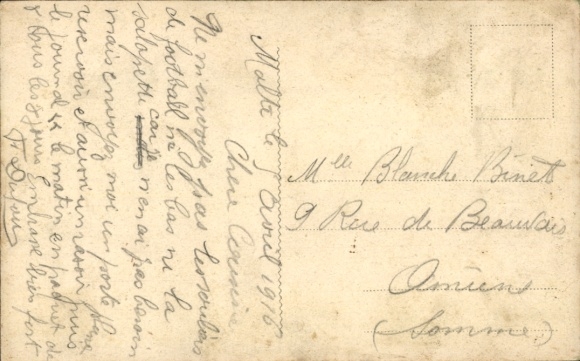 Malte le 5 avril 1916
Chère Cousine
Ne m'envoyez pas les souliers
de football ni les bas ni la
salopette car je n'en ai pas besoin
mais envoyez moi un porte plume
reservoir et aussi un rasoir puis
le journal le matin en paquet de
tous les 8 jours Embrasse bien fort
Mlle Blanche Binet
9 Rue de Beauvais
Amiens
(Somme)